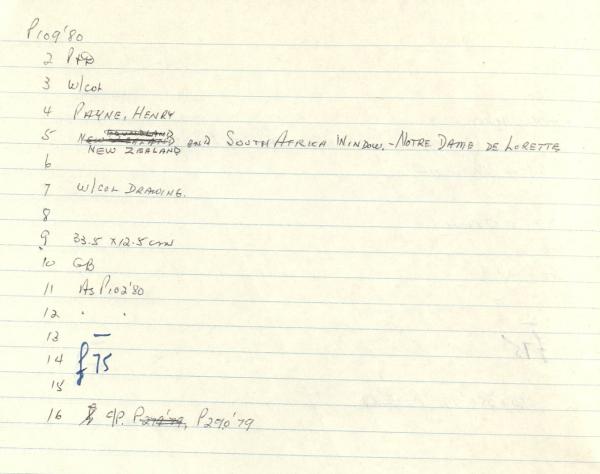 P109'80
2 P+D
3 W/COL
4 PAYNE, HENRY
5 NEW ZEALAND AND SOUTH AFRICA WINDOW. - NOTRE DAME DE LORETTE
6
7 W/COL DRAWING.
8
9 33.5 x 12.5 cm
10 GB
11 As P102'80
12 " "
13 —
14 £75
15
16 c/p. P279'79, P290'79